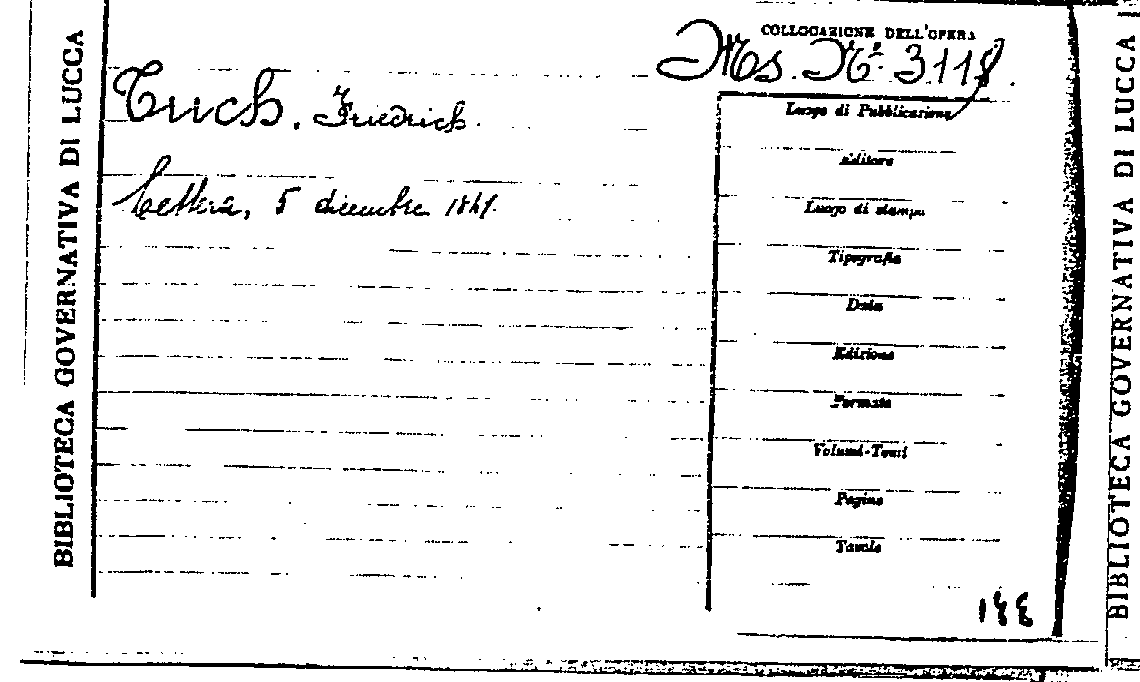 BIBLIOTECA GOVERNATIVA DI LUCCA
COLLOCAZIONE DELL'OPERA
Ms. N.º 3118.
Tuch. Friedrich.
Lettera, 5 dicembre
Luogo di Pubblicazione
Editore
Luogo di stampa
Tipografia
Data
Edizione
Formato
Volumi-Tomi
Pagine
Tavole
BIBLIOTECA GOVERNATIVA DI LUCCA